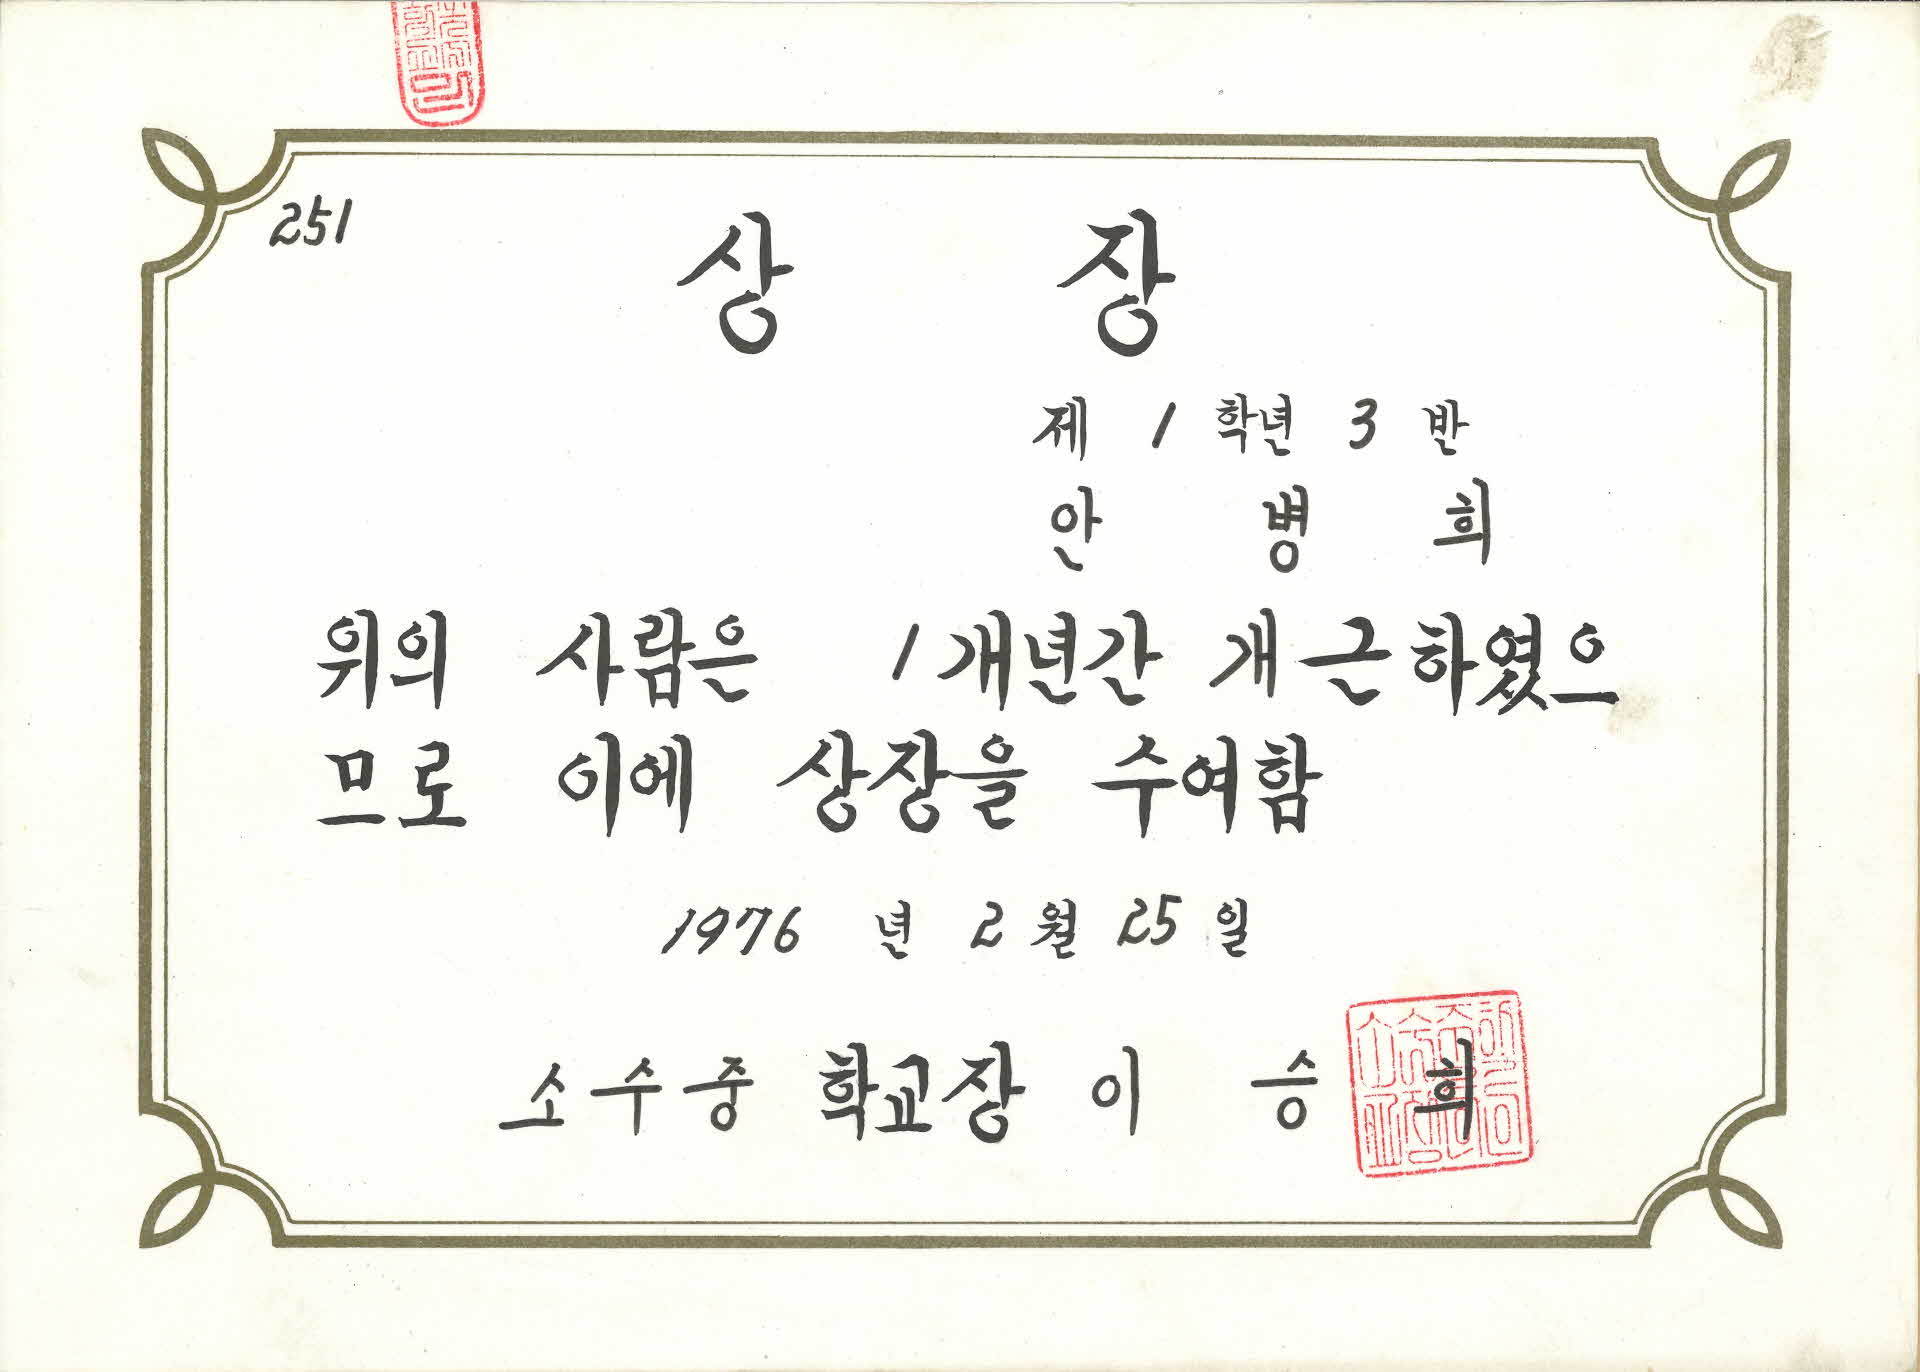 251
상 장
제 1 학년 3 반
안 병 희
위의 사람은 1개년간 개근하였으
므로 이에 상장을 수여함
1976 년 2 월 25 일
소수중 학교장 이 승 희